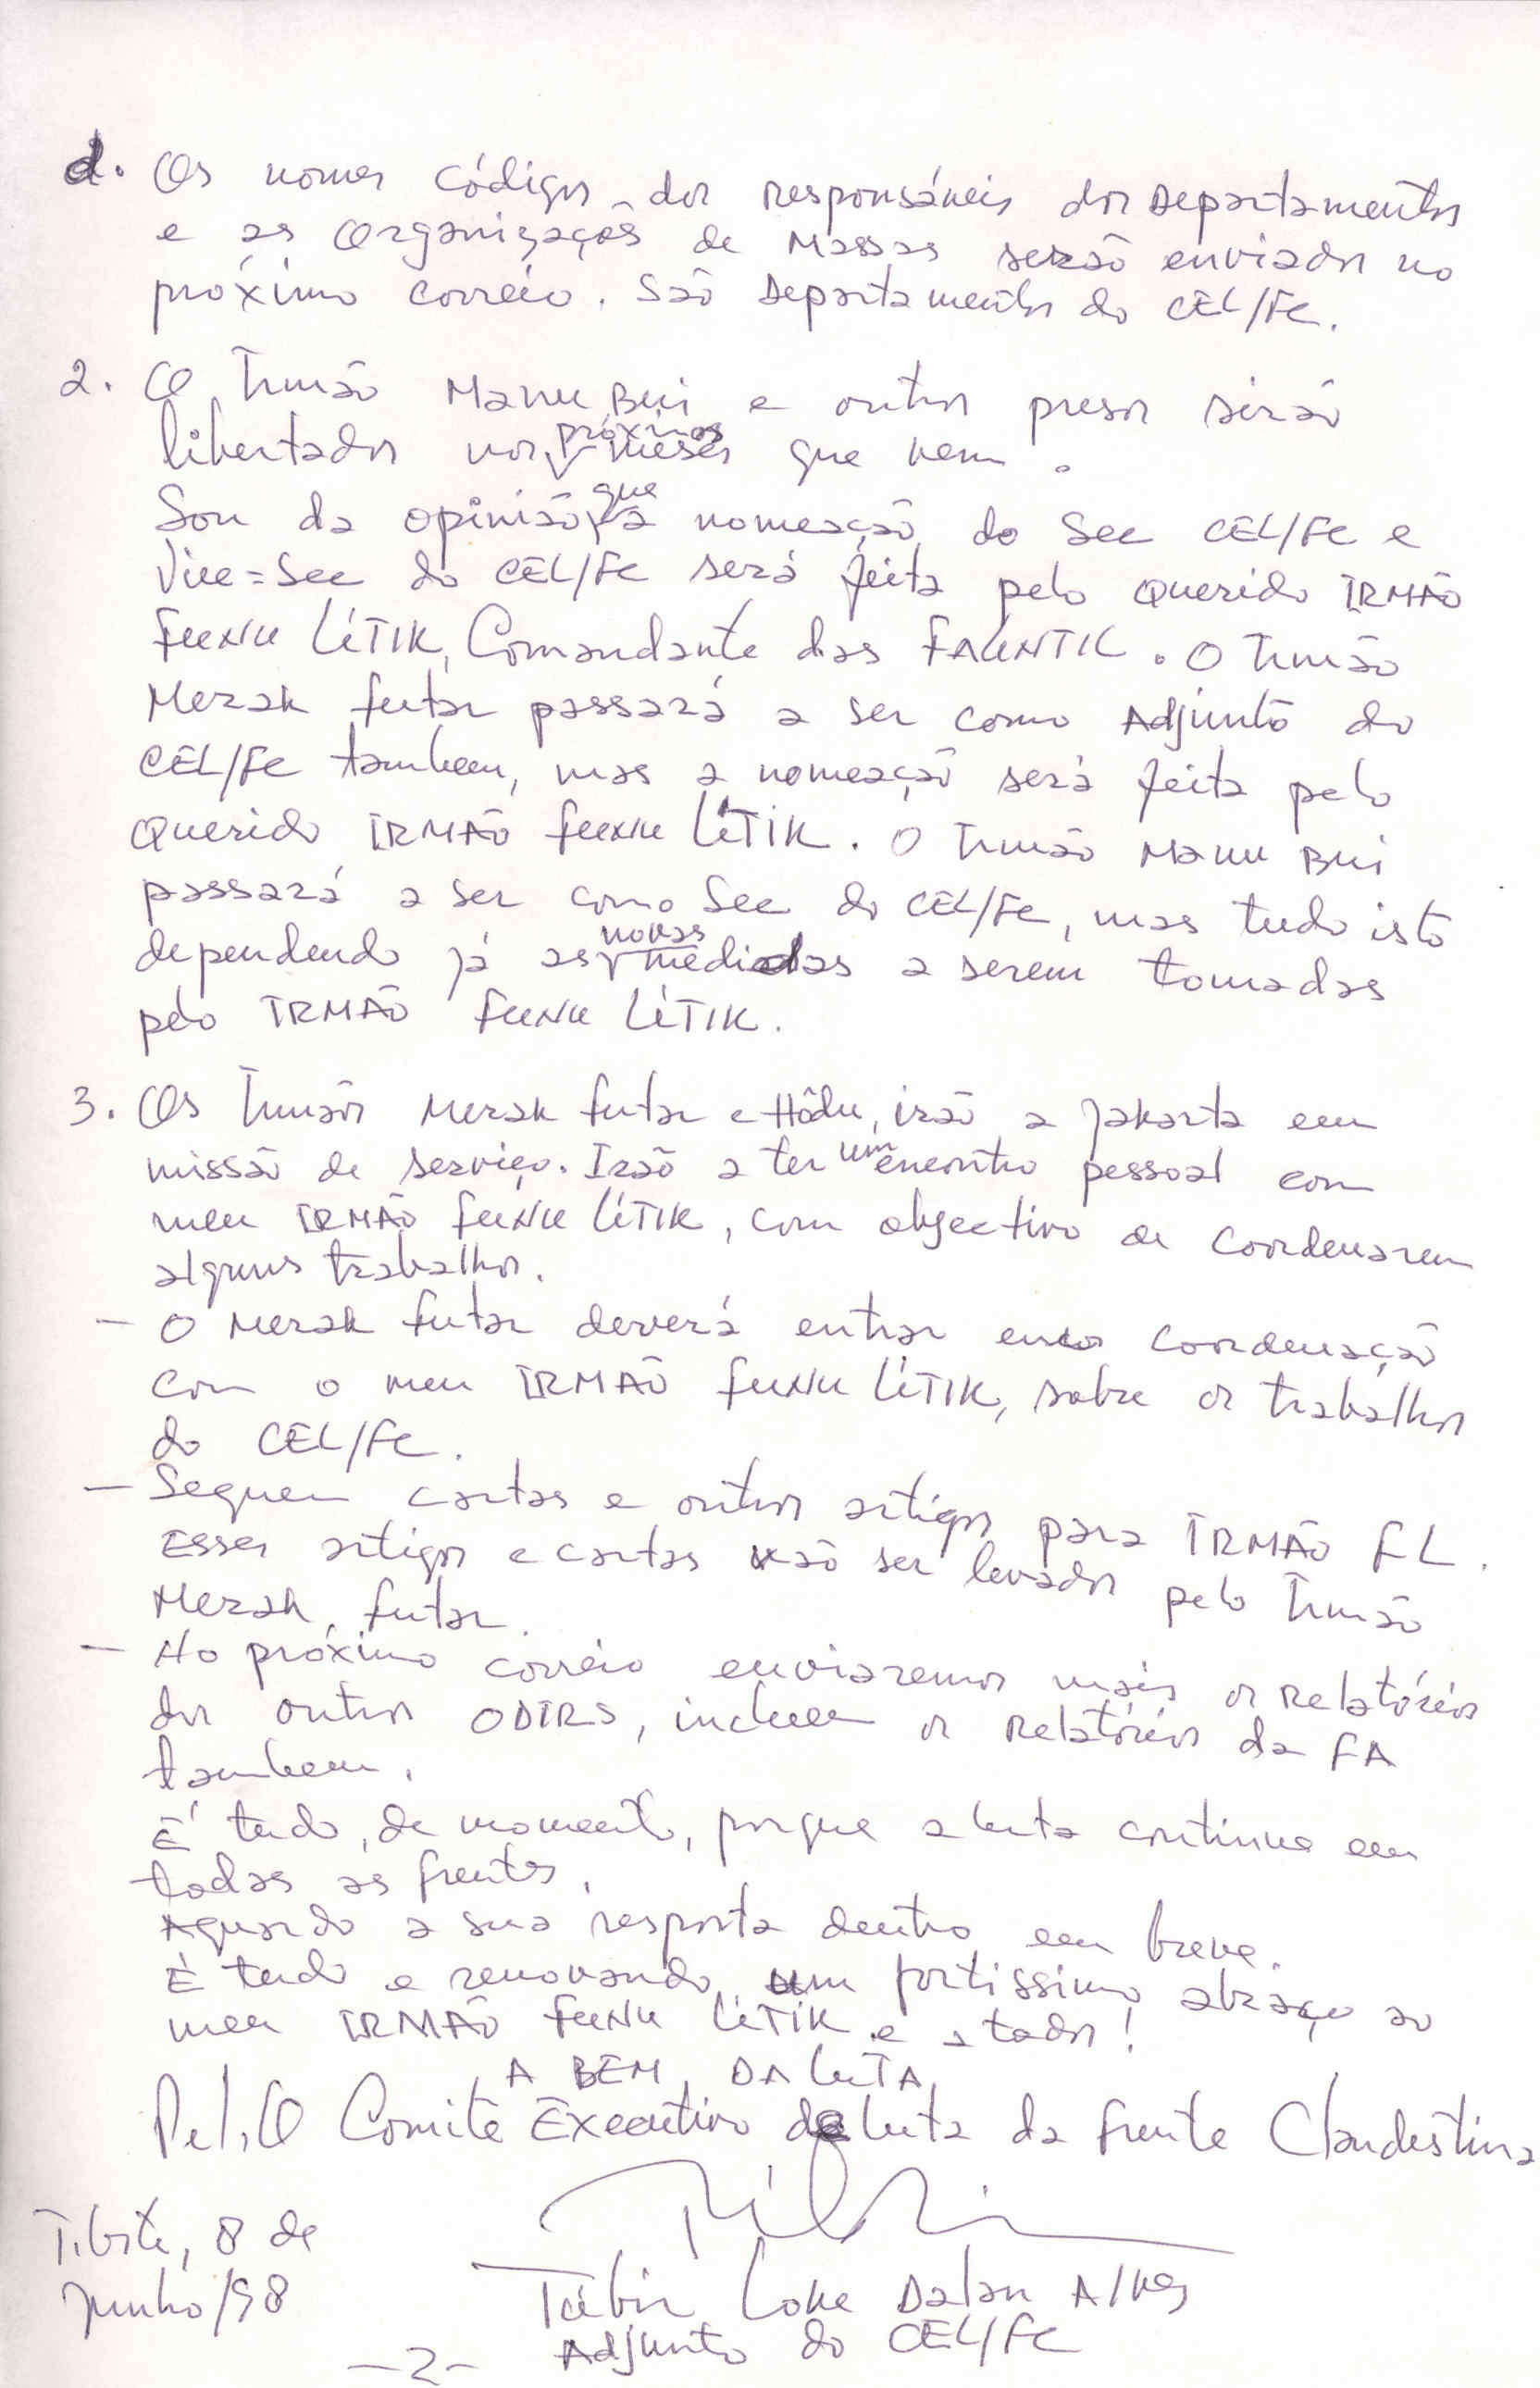 d. Os nomes Códigos dos responsáveis dos Departamentos
e as Organizaçoẽs de Massas serão enviados no
próximo correio. São Departamentos do CEL/FC.
2. O Irmão Manu Bui e outros presos serão
libertados nos próximos meses que vem.
Sou da opinião que a nomeação do Sec CEL/FC e
Vice=Sec do CEL/FC será feita pelo Querido IRMÃO
FUNU LÍTIK, Comandante das FALINTIL. O Irmão
Merak futar passará a ser como Adjunto do
CEL/FC tambem, mas a nomeação será feita pelo
Querido IRMÃO FUNU LÍTIK. O Irmão Manu Bui
passará a ser como Sec do CEL/FC, mas tudo isto
dependendo já as novas medidas a serem tomadas
pelo IRMÃO FUNU LÍTIK.
3. Os Irmãos Merak futar e Hôdu, irão a Jakarta em
missão de serviço. Irão a ter um encontro pessoal com
meu IRMÃO FUNU LÍTIK, com objectivo de coordenarem
alguns trabalhos.
- O Merak futar deverá entrar em coordenação
com o meu IRMÃO FUNU LÍTIK, sobre os trabalhos
do CEL/FC.
- Seguem cartas e outros artigos para IRMÃO FL.
Esses artigos e cartas vão ser levados pelo Irmão
Merak futar.
- No próximo correio enviaremos mais os Relatórios
dos outros ODIRS, incluem os Relatórios da FA
tambem.
É tudo, de momento, porque a luta continua em
todas as frentes.
Aguardo a sua resposta dentro em breve.
É tudo e renovando um fortissimo abraço ao
meu IRMÃO FUNU LÍTIK e a todos!
A BEM DA LUTA
Pel,O Comité Executivo da Luta da Frente Clandestina
Tibite, 8 de
Junho/98
Tubir Loke Dalan Alves
Adjunto do CEL/FC
-2-